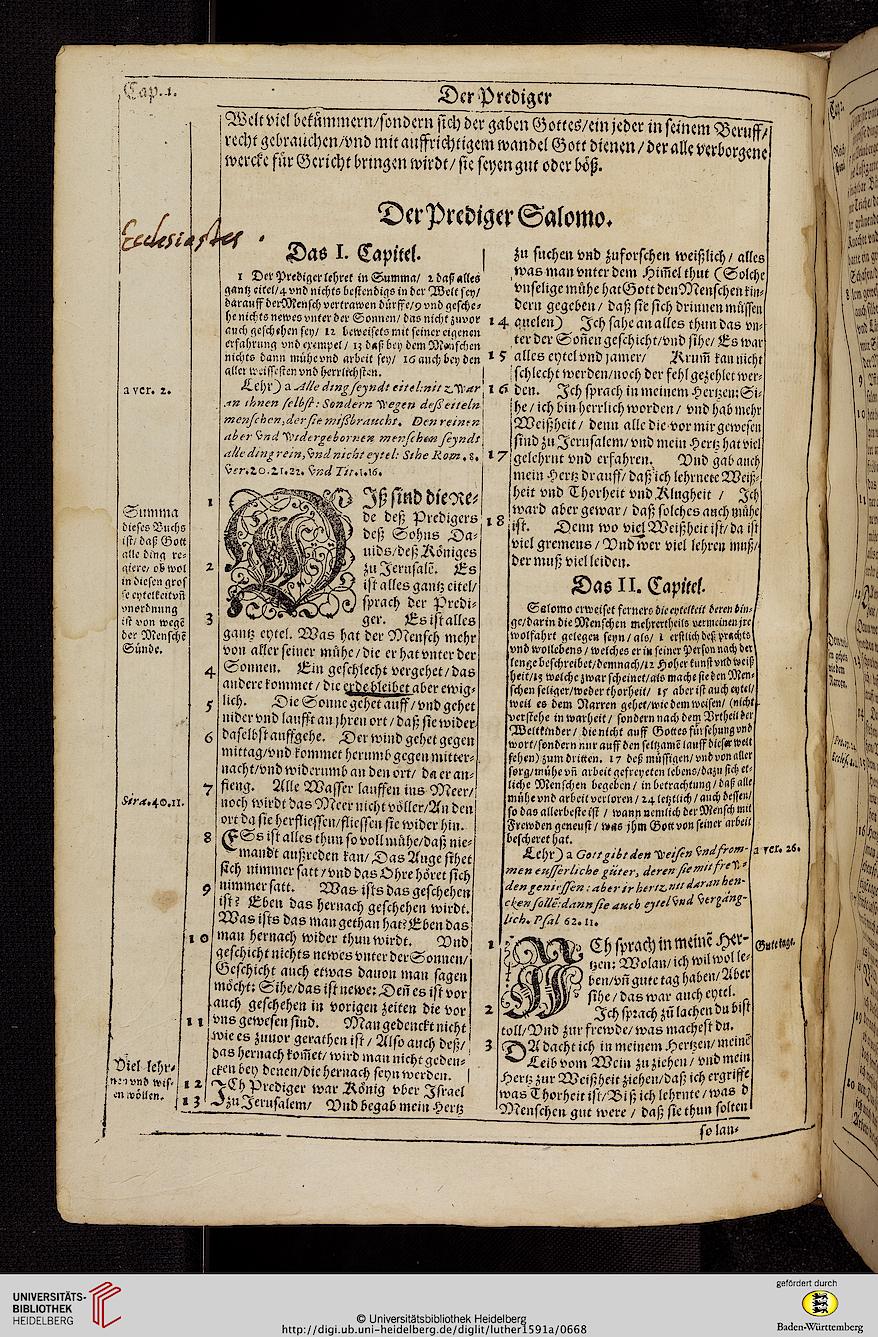 Cap. 1.
Der Prediger
Welt viel bekümmern/sondern sich der gaben Gottes/ein jeder in seinem Beruff/
recht gebrauchen/vnd mit auffrichtigem wandel Gott dienen/ der alle verborgene
wercke für Gericht bringen wirdt/ sie seyen gut oder böß.
Der Prediger Salomo.
Ecclesiastes .
Das I. Capitel.
1 Der Prediger lehret in Summa/ 2 daß alles
gantz eitel/4 vnd nichts bestendigs in der Welt sey/
darauff der Mensch vertrawen dürffe/9 vnd gesche-
he nichts newes vnter der Sonnen/ das nicht zuvor
auch geschehen sey/ 12 beweisets mit seiner eigenen
erfahrung vnd exempel/ 13 daß bey dem Menschen
nichts dann mühe vnd arbeit sey/ 16 auch bey den
aller weissesten vnd herrlichsten.
a ver. 2.
Lehr) a Alle ding seyndt eitel: nit zwar
an ihnen selbst: Sondern wegen deß eiteln
menschen, der sie mißbraucht. Den reinen
aber vnd widergebornen menschen seyndt
alle ding rein, vnd nicht eytel: Sihe Rom. 8.
ver. 20. 21. 22. vnd Tit. 1. 16.
Summa
dieses Buchs
ist/ daß Gott
alle ding re-
giere/ ob wol
in diesen gros
se eytelkeit vñ
vnordnung
ist von wegē
der Menschē
Sünde.
1 DIß sind die Re-
de deß Predigers
deß Sohns Da-
uids/deß Königes
2 zu Jerusalē. Es
ist alles gantz eitel/
sprach der Predi-
3 ger. Es ist alles
gantz eytel. Was hat der Mensch mehr
von aller seiner mühe/ die er hat vnter der
4 Sonnen. Ein geschlecht vergehet/ das
andere kommet/ die erde bleibet aber ewig-
5 lich. Die Sonne gehet auff/ vnd gehet
nider vnd laufft an jhren ort/ daß sie wider
6 daselbst auffgehe. Der wind gehet gegen
mittag/vnd kommet herumb gegen mitter-
nacht/vnd widerumb an den ort/ da er an-
7 fieng. Alle Wasser lauffen ins Meer/
Sira. 40. 11.
noch wirdt das Meer nicht völler/An den
ort da sie herfliessen/fliessen sie wider hin.
8 ES ist alles thun so voll mühe/daß nie-
mandt außreden kan/ Das Auge sihet
sich nimmer satt/vnd das Ohre höret sich
9 nimmer satt. Was ists das geschehen
ist? Eben das hernach geschehen wirdt.
Was ists das man gethan hat? Eben das
10 man hernach wider thun wirdt. Vnd
geschicht nichts newes vnter der Sonnen/
Geschicht auch etwas dauon man sagen
möcht: Sihe/das ist newe: Deñ es ist vor
auch geschehen in vorigen zeiten die vor
11 vns gewesen sind. Man gedenckt nicht
wie es zuuor gerathen ist/ Also auch deß/
das hernach kom̃et/ wird man nicht geden-
cken bey denen/die hernach seyn werden.
Viel lehr-
nen vnd wis-
en wöllen.
12 ICh Prediger war König vber Israel
13 zu Jerusalem/ Vnd begab mein Hertz
zu suchen vnd zuforschen weißlich/ alles
was man vnter dem Him̃el thut (Solche
vnselige mühe hat Gott den Menschen kin-
dern gegeben/ daß sie sich drinnen müssen
14 quelen) Ich sahe an alles thun das vn-
ter der Soñen geschicht/vnd sihe/ Es war
15 alles eytel vnd jamer/ Krum̃ kan nicht
schlecht werden/noch der fehl gezehlet wer-
16 den. Ich sprach in meinem Hertzen: Si-
he/ ich bin herrlich worden/ vnd hab mehr
Weißheit/ denn alle die vor mir gewesen
sind zu Jerusalem/ vnd mein Hertz hat viel
17 gelehrnt vnd erfahren. Vnd gab auch
mein Hertz drauff/ daß ich lehrnete Weiß-
heit vnd Thorheit vnd Klugheit / Ich
ward aber gewar/ daß solches auch mühe
18 ist. Denn wo viel Weißheit ist/ da ist
viel gremens/ Vnd wer viel lehren muß/
der muß viel leiden.
Das II. Capitel.
Salomo erweiset ferners die eytelkeit deren din-
ge/darin die Menschen mehrertheils vermeinen jre
wolfahrt gelegen seyn/ als/ 1 erstlich deß prachts
vnd wollebens/ welches er in seiner Person nach der
lenge beschreibet/demnach/12 Hoher kunst vnd weiß
heit/13 welche zwar scheinet/als mache sie den Men-
schen seliger/weder thorheit/ 15 aber ist auch eytel/
weil es dem Narren gehet/wie dem weisen/ (nicht
verstehe in warheit/ sondern nach dem Vrtheil der
Weltkinder/ die nicht auff Gottes fürsehung vnd
wort/sondern nur auff den seltzamē lauff dieser welt
sehen) zum dritten. 17 deß müssigen/ vnd von aller
sorg/mühe vñ arbeit gefreyeten lebens/dazu sich et-
liche Menschen begeben/ in betrachtung/ daß alle
mühe vnd arbeit verloren/ 24 letztlich/ auch dessen/
so das allerbeste ist / wann nemlich der Mensch mit
Frewden geneust/ was jhm Gott von seiner arbeit
bescheret hat.
Lehr) a Gott gibt den weisen vnd from-
a ver. 26.
men eusserliche güter, deren sie mit frew-
den geniessen: aber ir hertz nit daran hen-
cken sollē: dann sie auch eytel vnd vergäng-
lich. Psal 62. 11.
1 ICh sprach in meinē Her-
Gute tage.
tzen: Wolan/ ich wil wol le-
ben/vñ gute tag haben/ Aber
sihe/ das war auch eytel.
2 Ich sprach zū lachen du bist
toll/Vnd zur frewde/ was machest du.
3 DA dacht ich in meinem Hertzen/ meinē
Leib vom Wein zu ziehen/ vnd mein
Hertz zur Weißheit ziehen/daß ich ergriffe
was Thorheit ist/ Biß ich lehrnte/ was d
Menschen gut were/ daß sie thun solten
so lan-
UNIVERSITÄTS-
BIBLIOTHEK
HEIDELBERG
© Universitätsbibliothek Heidelberg
http://digi.ub.uni-heidelberg.de/diglit/luther1591a/0668
gefördert durch
Baden-Württemberg